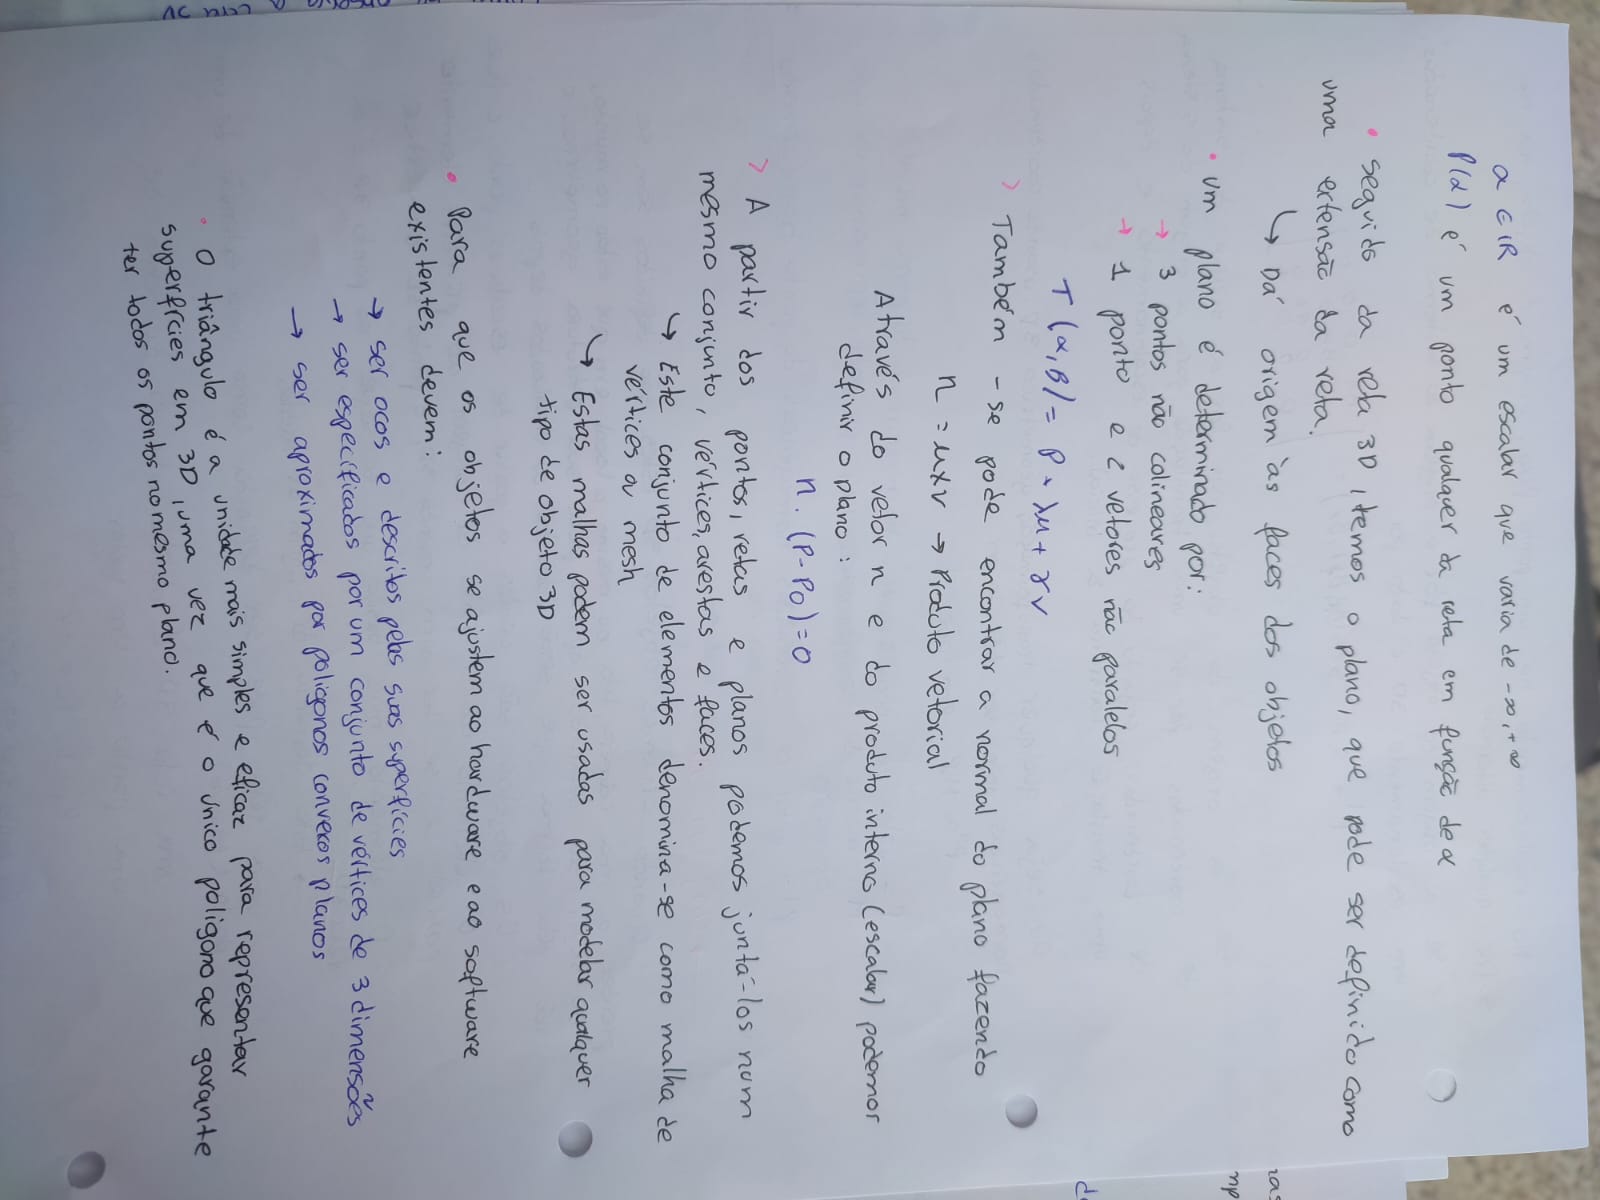 α ∈ IR é um escalar que varia de -∞, +∞
P(α) é um ponto qualquer da reta em função de α
• Seguido da reta 3D, temos o plano, que pode ser definido como
uma extensão da reta.
↳ Dá origem às faces dos objetos
• Um plano é determinado por:
→ 3 pontos não colineares
→ 1 ponto e 2 vetores não paralelos
T(α,B) = P + λμ + γv
> Também -se pode encontrar a normal do plano fazendo
n = μxv → Produto vetorial
Através do vetor n e do produto interno (escalar) podemor
definir o plano:
n. (P-P0)=0
> A partir dos pontos, retas e planos podemos juntá-los num
mesmo conjunto, vértices, arestas e faces.
↳ Este conjunto de elementos denomina-se como malha de
vértices ou mesh
↳ Estas malhas podem ser usadas para modelar qualquer
tipo de objeto 3D
• Para que os objetos se ajustem ao hardware e ao software
existentes devem:
→ ser ocos e descritos pelas suas superfícies
→ ser especificados por um conjunto de vértices de 3 dimensões
→ ser aproximados por poligonos convexos planos
• O triângulo é a unidade mais simples e eficaz para representar
superfícies em 3D, uma vez que é o único poligono que garante
ter todos os pontos no mesmo plano.